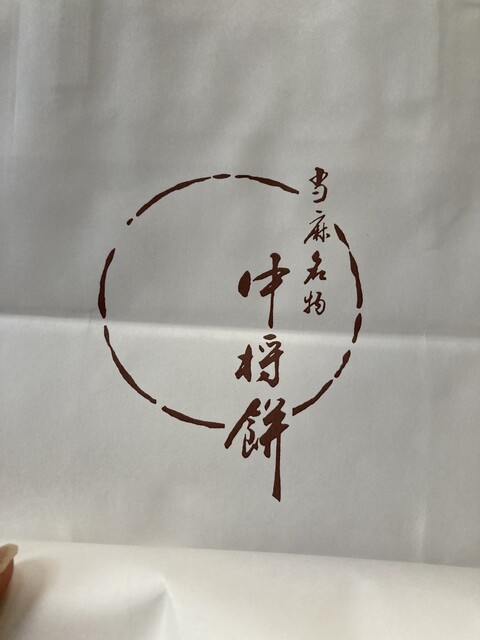 当麻名物
中将餅